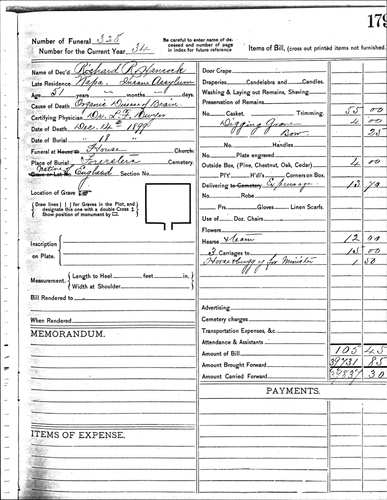 179
Number of Funeral 328
Number for the Current Year 34
Be careful to enter name of de-
ceased and number of page
in index for future reference
Items of Bill, (cross out printed items not furnished.
Name of Dec'd Richard R. Hancock
Late Residence Napa. Insane Asaylum
Age 51 years — months — days.
Cause of Death Organic Disease of Brain.
Certifying Physician Dr. L. F.
Date of Death, Dec. 14th 1899
Date of Burial " 18 "
Funeral at House Church,
Place of Burial Foresters Cemetery.
Native of England Section No.
Location of Grave
Draw lines for Graves in the Plot, and
designate this one with a double Cross
Show position of monument by
Inscription
on Plate.
Measurement. Length to Heel feet in.
Width at Shoulder
Bill Rendered to
When Rendered
MEMORANDUM.
ITEMS OF EXPENSE.
Door Crape
Draperies Candelabra and Candles.
Washing & Laying out Remains, Shaving
Preservation of Remains
No. Casket. Trimming. 55 00
Digging Grave 4 00
Bow 25
No. Handles
Plate engraved
Outside Box, (Pine, Chestnut, Oak, Cedar) 4 00
P'I'Y H'dl's Comerson Box
Delivering to Cemetery Expressage 13 70
No. Robe
Prs. Gloves Linen Scarfs.
Use of Doz. Chairs
Flowers
Hearse 12 00
3 Carriages to 15 00
Horse & buggy for Minister 1 50
Advertising
Cemetery charges
Transportation Expenses, &c
Attendance & Assistants
Amount of Bill 105 45
Amount Brought Forward 39731 85
Amount Carried Forward 39837 30
PAYMENTS.